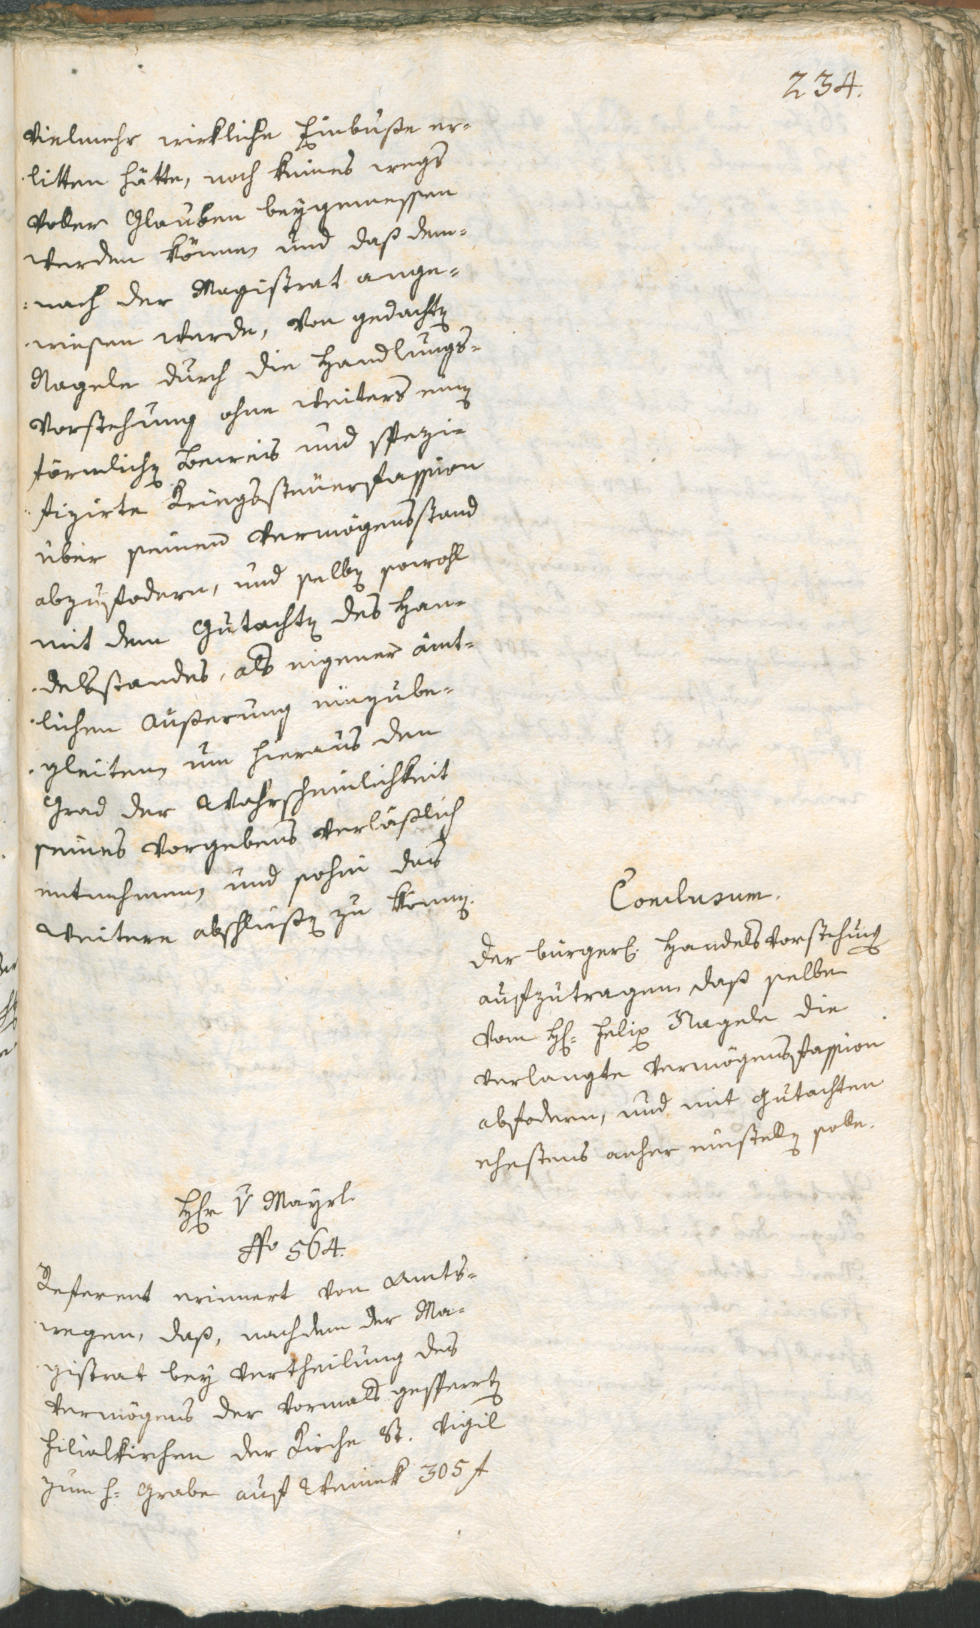 234.
vielmehr wirkliche Einbuße er-
litten hätte, noch keines wegs
voller Glauben beygemessen
werden könne, und daß dem-
nach der Magistrat ange-
wiesen werde, von gedachtē
Nagele durch die Handlungs-
vorstehung ohne weiters einē
förmlichē Beweis und spezi-
fizirte Kriegssteüerfassion
über seinen Vermögensstand
abzufodern, und selbē sowohl
mit dem Gutachtē des Han-
delsstandes, als eigener ämt-
lichen Äußerung einzube-
gleiten, um hieraus den
Grad der Wahrscheinlichkeit
seines Vorgebens verläßlich
entnehmen, und sohin das
Weitere abschlüßē zu könnē.
Conclusum.
Der bürgerl. Handelsvorstehung
aufzutragen daß selbe
vom H: Felix Nagele die
verlangte Vermögensfassion
abfodern, und mit Gutachten
ehestens anher einstellē solle.
Hr v Mayrl.
No 564.
Referent erinnert von Amts-
wegen, daß, nachdem der Ma-
gistrat bey Vertheilung des
Vermögens der vormals gesperrtē
Filialkirchen der Kirche St. Vigil
zum h: Grabe auf Weinek 305 f